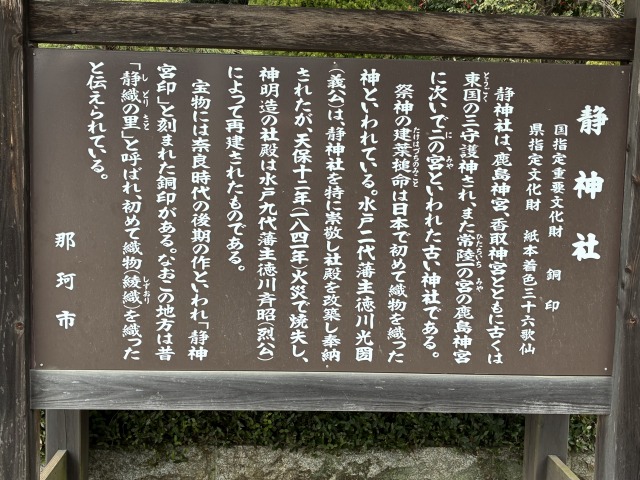 静神社
国指定重要文化財　銅印
県指定文化財　紙本着色三十六歌仙
静神社は、鹿島神宮、香取神宮とともに古くは
東国の三守護神され、また常陸一の宮の鹿島神宮
に次いで二の宮といわれた古い神社である。
祭神の建葉槌命は日本で初めて織物を織った
神といわれている。水戸二代藩主徳川光圀
(義公)は、静神社を特に崇敬し社殿を改築し奉納
されたが、天保十二年(一八四一年)火災で焼失し、
神明造の社殿は水戸九代藩主徳川斉昭(烈公)
によって再建されたものである。
宝物には奈良時代の後期の作といわれ「静神
宮印」と刻まれた銅印がある。なおこの地方は昔
「静織の里」と呼ばれ、初めて織物(綾織)を織った
と伝えられている。
那珂市